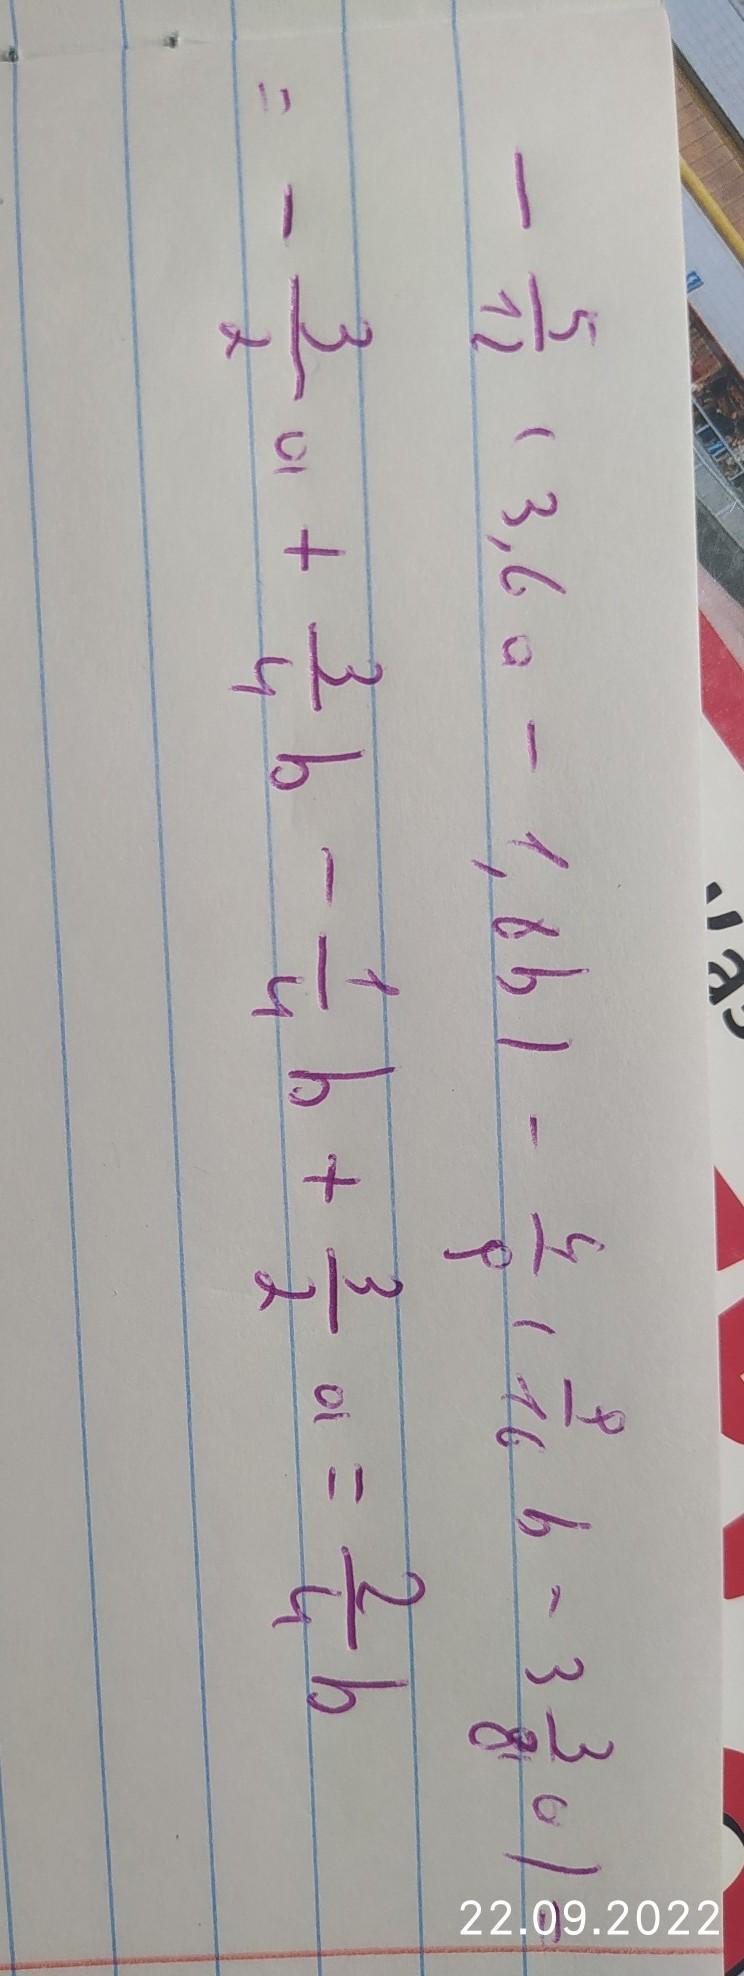 - 5/12 (3,6a - 1,8b) - 4/9 (9/16 b - 3 3/8 a) =
= - 3/2 a + 3/4 b - 1/4 b + 3/2 a = 2/4 b
22.09.2022